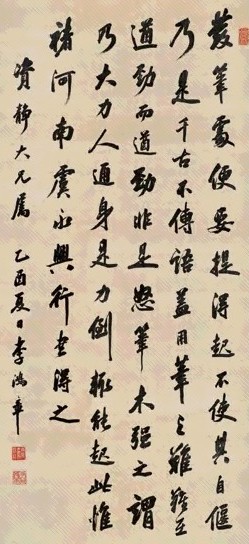 發筆處便要提得起不使其自偃
乃是千古不傳語蓋用筆之難難在
遒勁而遒勁非是怒筆木強之謂
乃大力人通身是力倒輒能起此惟
褚河南虞永興行書得之
資靜大兄屬 乙酉夏日李鴻章